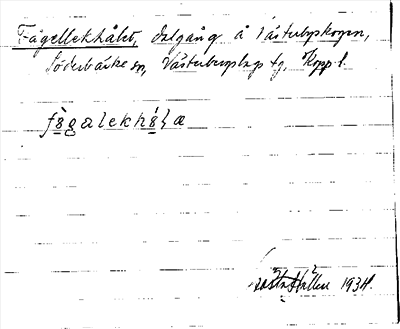 Fågellekhålet, dalgång å Västerbyskogen,
Söderbärke sn, Västerbergslags tg. Kopp. l.
fågalekhå̀la
Gösta Hallén 1934.